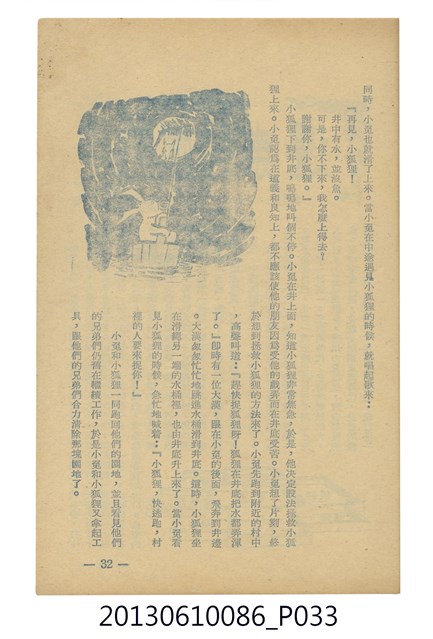 同時，小兎也就滑了上來。當小兎在中途遇見小狐狸的時候，就唱起歌來：
『再見，小狐狸！
井中有水，並沒魚。
可是，你不下來，我怎麼上得去！
謝謝你，小狐狸。』
小狐狸下到井底，嗚嗚地叫個不停。小兎在井上面，知道小狐狸非常焦急，於是，他决定設法拯救小狐
狸上來。小兎認爲在道義和良知上，都不應該使他的朋友因爲受他的戲弄而在井底受苦。小兎想了片刻，終
於想到拯救小狐狸的方法來了。小兎先跑到附近的村中
，高聲叫道：『趕快捉狐狸呀！狐狸在井底把水都弄渾
了。』卽時有一位大漢，跟在小兎的後面，飛奔到井邊
。大漢忽忽忙忙地跳進水桶滑到井底。這時，小狐狸坐
在滑繩另一端的水桶裡，也由井底升上來了。當小兎看
見小狐狸的時候，急忙地喊着：『小狐狸，快逃跑，村
裡的人要來捉你！』
小兎和小狐狸一同跑回他們的園地，並且看見他們
的兄弟們仍舊在繼續工作，於是小兎和小狐狸又拿起工
具，跟他們的兄弟們合力清除那塊園地了。
— 32 —
20130610086_P033